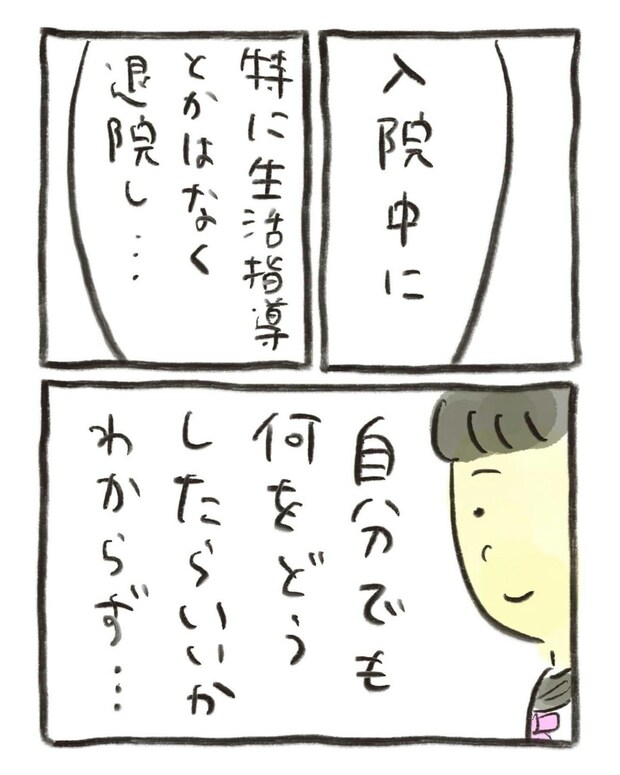 入院中に
特に生活指導
とかはなく
退院し…
自分でも
何をどう
したらいいか
わからず…